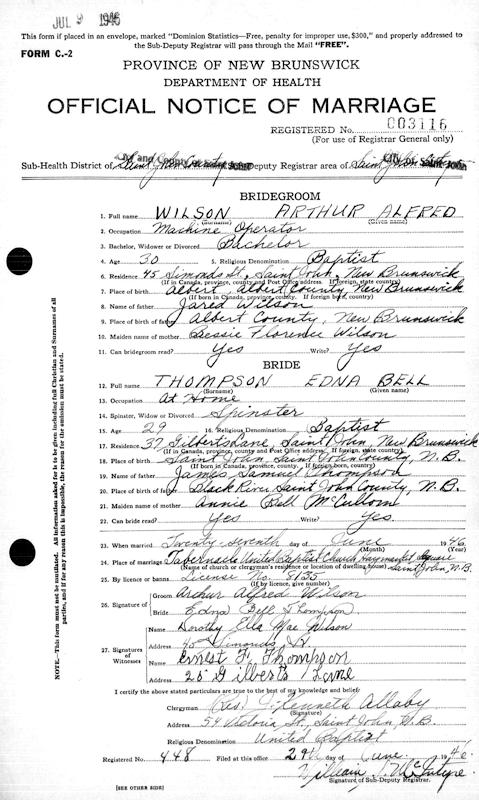 JUL 9 1946
This form if placed in an envelope, marked "Dominion Statistics—Free, penalty for improper use, $300," and properly addressed to the Sub-Deputy Registrar will pass through the Mail "FREE".
FORM C.-2
PROVINCE OF NEW BRUNSWICK
DEPARTMENT OF HEALTH
OFFICIAL NOTICE OF MARRIAGE
REGISTERED No. 003116
(For use of Registrar General only)
Sub-Health District of Saint John County Sub-Deputy Registrar area of Saint John City
BRIDEGROOM
1. Full name WILSON ARTHUR ALFRED
(Surname) (Given name)
2. Occupation Machine Operator
3. Bachelor, Widower or Divorced Bachelor
4. Age 30 5. Religious Denomination Baptist
6. Residence 45 Simonds St., Saint John, New Brunswick
(If in Canada, province, county and Post Office address. If foreign, state country)
7. Place of birth Albert, Albert County, New Brunswick
(If born in Canada, province, county. If foreign born, country)
8. Name of father Jared Wilson
9. Place of birth of father Albert County, New Brunswick
10. Maiden name of mother Bessie Florence Wilson
11. Can bridegroom read? Yes Write? Yes
BRIDE
12. Full name THOMPSON EDNA BELL
(Surname) (Given name)
13. Occupation At Home
14. Spinster, Widow or Divorced Spinster
15. Age 29 16. Religious Denomination Baptist
17. Residence 37 Gilberts Lane, Saint John, New Brunswick
(If in Canada, province, county and Post Office address. If foreign, state country)
18. Place of birth Saint John, Saint John County, N.B.
(If born in Canada, province, county. If foreign born, country)
19. Name of father James Samuel Thompson
20. Place of birth of father Black River, Saint John County, N.B.
21. Maiden name of mother Annie Bell McCullom
22. Can bride read? Yes Write? Yes.
23. When married Twenty-seventh day of June 1946
(Month) (Year)
24. Place of marriage Tabernacle United Baptist Church, Haymarket Square
(Name of church, clergyman's residence or location of dwelling house) Saint John, N.B.
25. By licence or banns License No. 8135
(If by licence, give number)
26. Signature of
Groom Arthur Alfred Wilson
Bride Edna Bell Thompson
27. Signatures of Witnesses
Name Dorothy Ella Mae Wilson
Address 45 Simonds St.
Name Ernest F. Thompson
Address 25 Gilberts Lane
I certify the above stated particulars are true to the best of my knowledge and belief:
Clergyman (Rev.) J. Kenneth Allaby
(Signature)
Address 54 Victoria St., Saint John, N.B.
Religious Denomination United Baptist
Registered No. 448 Filed at this office 29th June 1946
William J. McIntyre
Signature of Sub-Deputy Registrar.
[SEE OTHER SIDE]
NOTE.—This form must not be mutilated. All information asked for is to be given including full Christian and Surnames of all parties, and if for any reason the omission must be made, the reason for the omission must be stated.